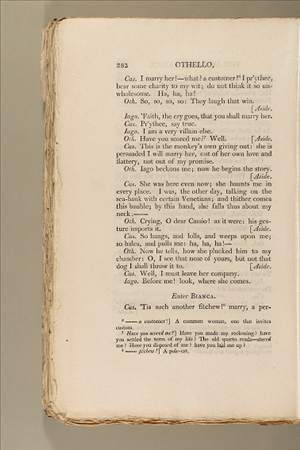 382 OTHELLO,
Cas. I marry her!—what? a customer!⁶ I pr'ythee,
bear some charity to my wit; do not think it so un-
wholesome. Ha, ha, ha!
Oth. So, so, so, so: They laugh that win.
[Aside.
Iago. 'Faith, the cry goes, that you shall marry her.
Cas. Pr'ythee, say true.
Iago. I am a very villain else.
Oth. Have you scored me?⁷ Well. [Aside.
Cas. This is the monkey's own giving out: she is
persuaded I will marry her, out of her own love and
flattery, not out of my promise.
Oth. Iago beckons me; now he begins the story.
[Aside.
Cas. She was here even now; she haunts me in
every place. I was, the other day, talking on the
sea-bank with certain Venetians; and thither comes
this bauble; by this hand, she falls thus about my
neck;——
Oth. Crying, O dear Cassio! as it were: his ges-
ture imports it. [Aside.
Cas. So hangs, and lolls, and weeps upon me;
so hales, and pulls me: ha, ha, ha!—
Oth. Now he tells, how she plucked him to my
chamber: O, I see that nose of yours, but not that
dog I shall throw it to. [Aside.
Cas. Well, I must leave her company.
Iago. Before me! look, where she comes.
Enter BIANCA.
Cas. 'Tis such another fitchew!⁸ marry, a per-
⁶ —— a customer!] A common woman, one that invites
custom.
⁷ Have you scored me?] Have you made my reckoning? have
you settled the term of my life? The old quarto reads—stored
me? Have you disposed of me? have you laid me up?
⁸ —— fitchew!] A pole-cat.